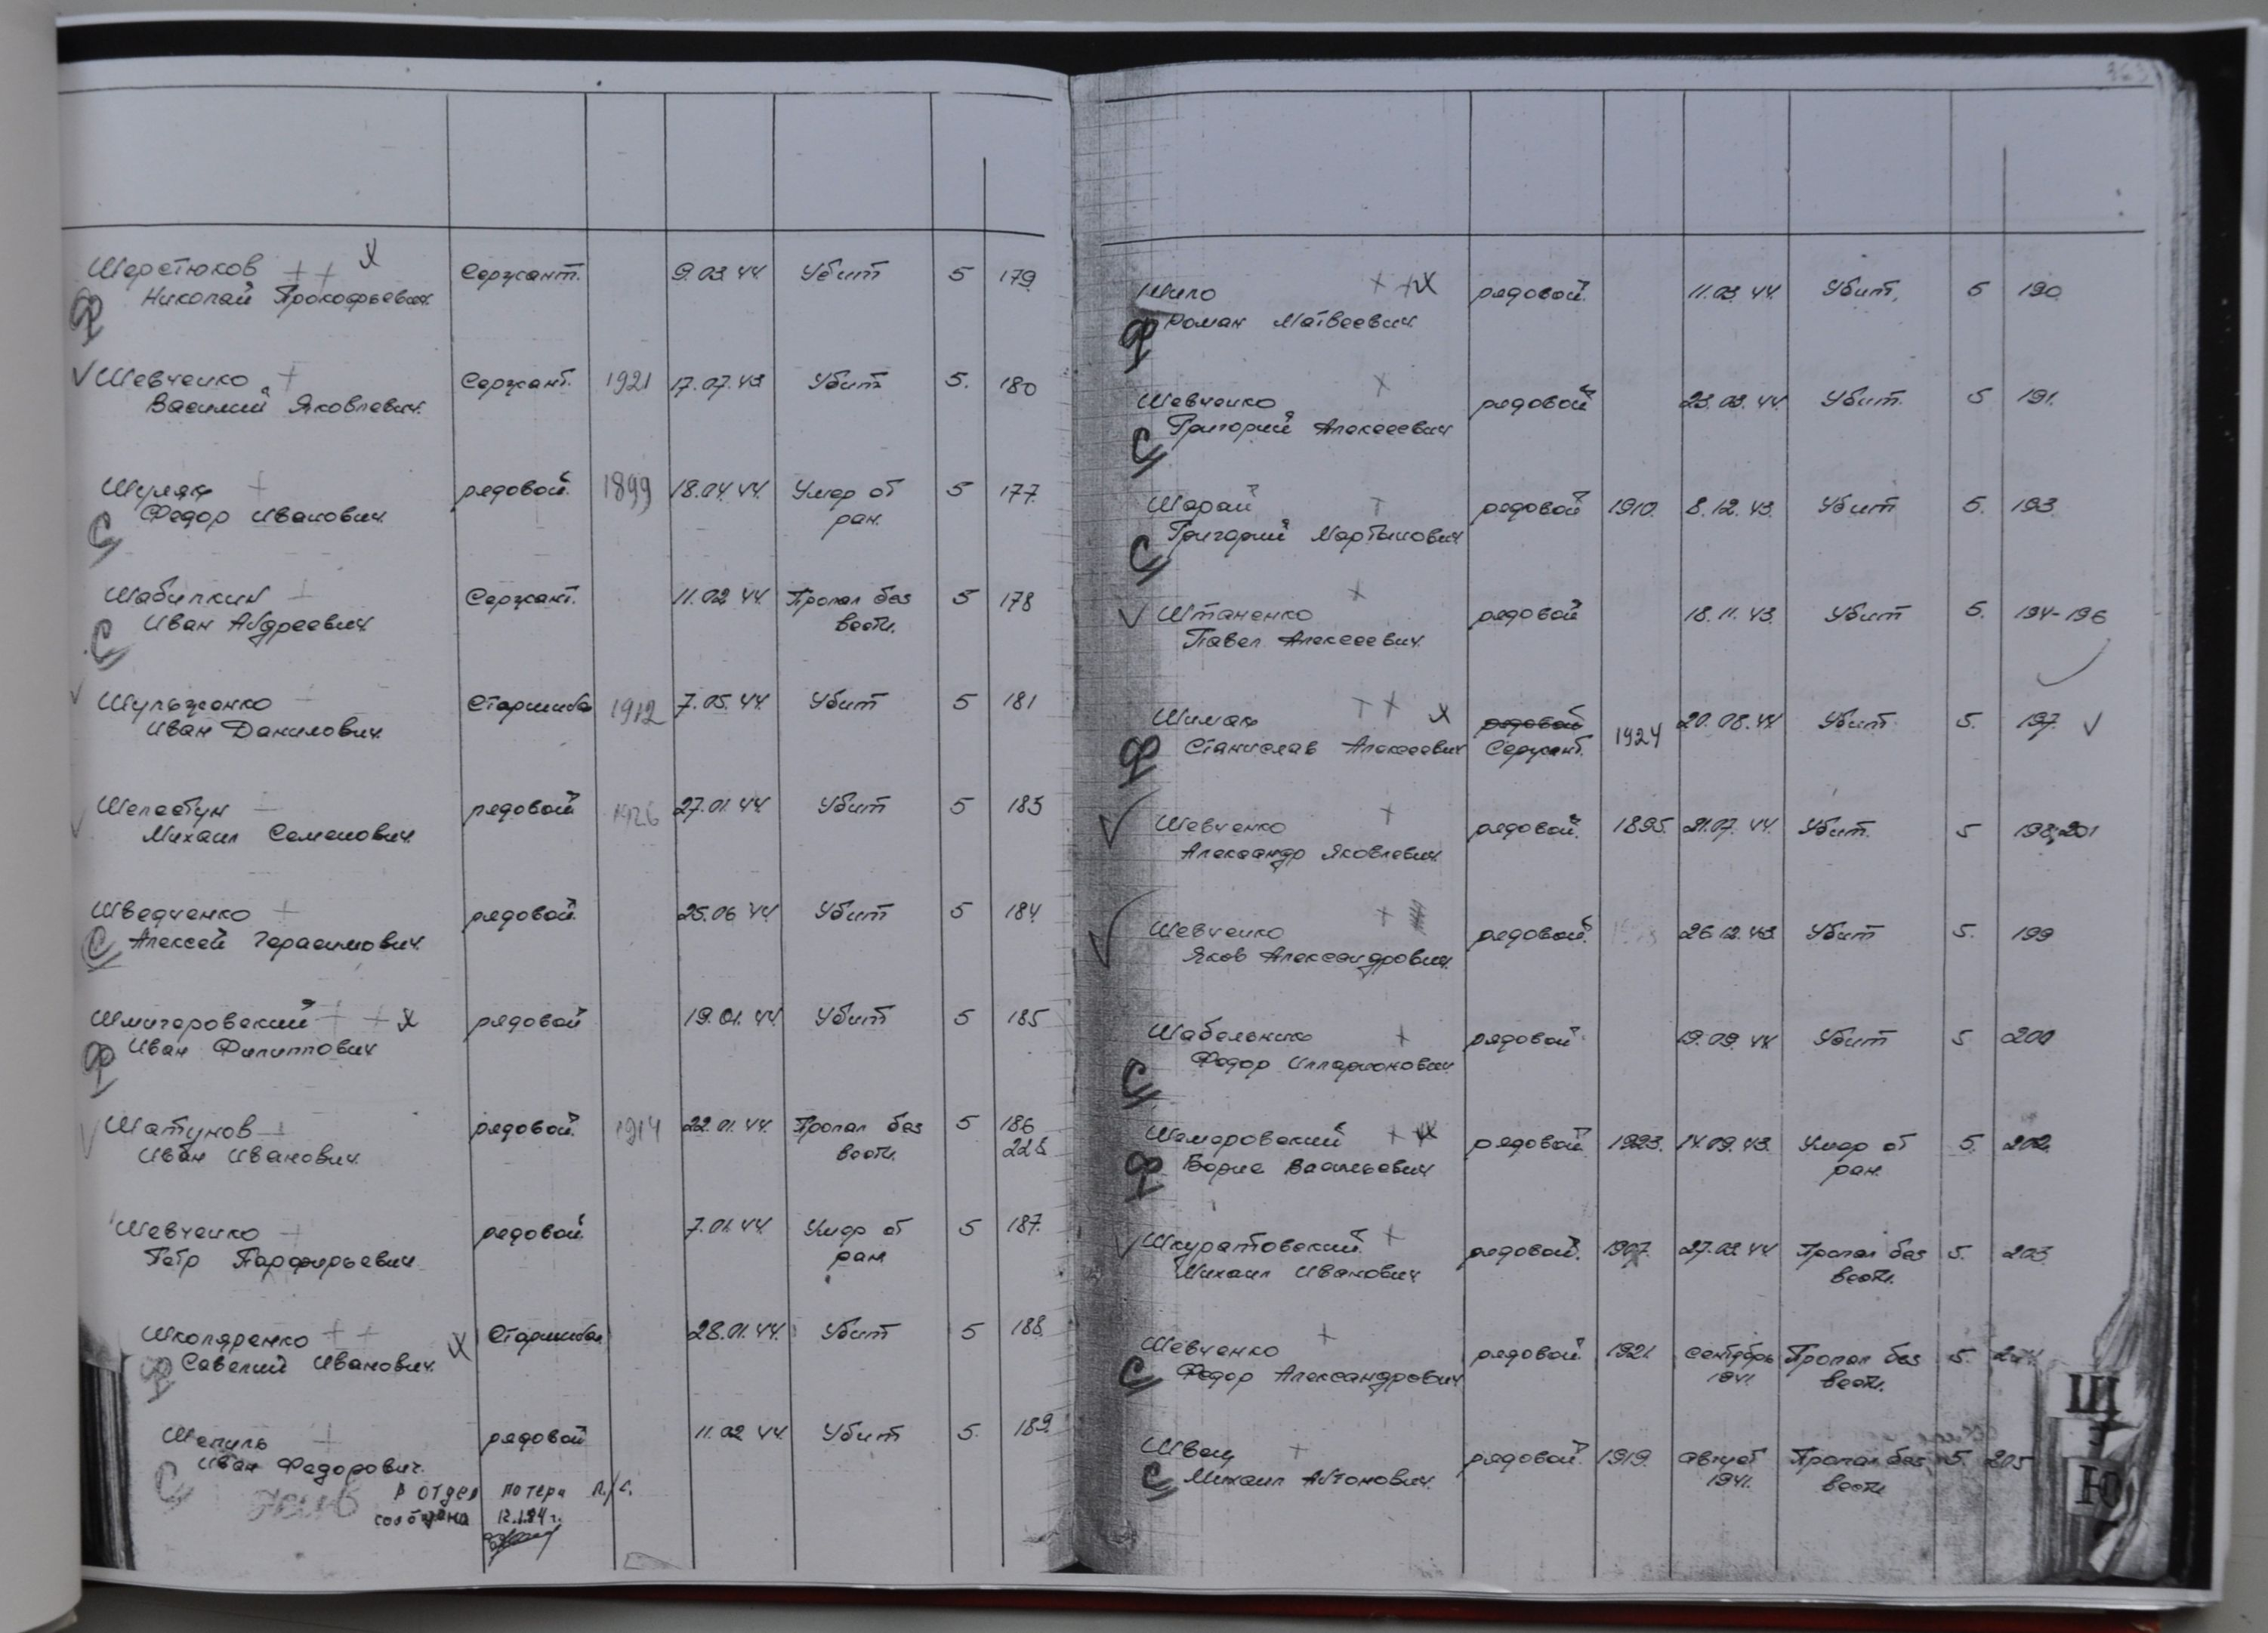 Шеретюков ++ х Сержант. 9.03.44 Убит 5 179.
Ф Николай Прокофьевич.
✓ Шевченко + Сержант. 1921 17.07.43 Убит 5. 180
Василий Яковлевич.
Шуляк + рядовой. 1899 18.04.44. Умер от 5 177.
С Федор Иванович. ран.
Шабилкин + Сержант. 11.02.44. Пропал без 5 178
С Иван Андреевич вести.
✓ Шульженко + Старшина 1912 7.05.44. Убит 5 181
Иван Данилович.
✓ Шелестун рядовой 1926 27.01.44. Убит 5 183
Михаил Семенович.
Шведченко + рядовой. 25.06.44. Убит 5 184.
С Алексей Герасимович.
Шмигеровский + + х рядовой 19.01.44. Убит 5 185
Ф Иван Филиппович
✓ Шатунов + рядовой. 1914 22.01.44. Пропал без 5 186
Иван Иванович. вести. 228
Шевченко + рядовой. 7.01.44. Умер от 5 187.
Петр Парфирьевич ран
Школяренко ++ х Старшина 28.01.44. Убит 5 188.
Ф Савелий Иванович.
Шепиль + рядовой 11.02.44. Убит 5. 189.
Иван Федорович.
С жив в отдел потерь л/с.
сообщено 12.1.94г.
363
Шило + + х рядовой. 11.03.44. Убит. 5 190
Ф Роман Матвеевич.
Шевченко + рядовой 23.03.44. Убит. 5 191.
С Григорий Алексеевич
Шарай + рядовой 1910. 8.12.43. Убит 5. 193
С Григорий Мартынович
✓ Штаненко + рядовой 18.11.43. Убит 5. 194-196
Павел Алексеевич. ✓
Шимак + + х рядовой 1924 20.08.44 Убит 5. 197. ✓
Ф Станислав Алексеевич Сержант.
✓ Шевченко + рядовой. 1895. 21.07.44. Убит. 5 198,201
Александр Яковлевич.
✓ Шевченко + рядовой. 26.12.43. Убит 5. 199
Яков Александрович.
Шабельнико + рядовой. 19.09.44 Убит 5 200
С Федор Илларионович.
Шемеровский + х рядовой. 1923. 14.09.43. Умер от 5. 202
Ф Борис Васильевич ран.
✓ Шкуратовский + рядовой. 1907. 27.02.44 Пропал без 5. 203
Михаил Иванович вести.
Шевченко + рядовой 1921. сентябрь Пропал без 5. 204
С Федор Александрович 1941. вести.
Швец + рядовой. 1919. август Пропал без 5. 205
С Михаил Антонович. 1941. вести
Щ
Э
Ю